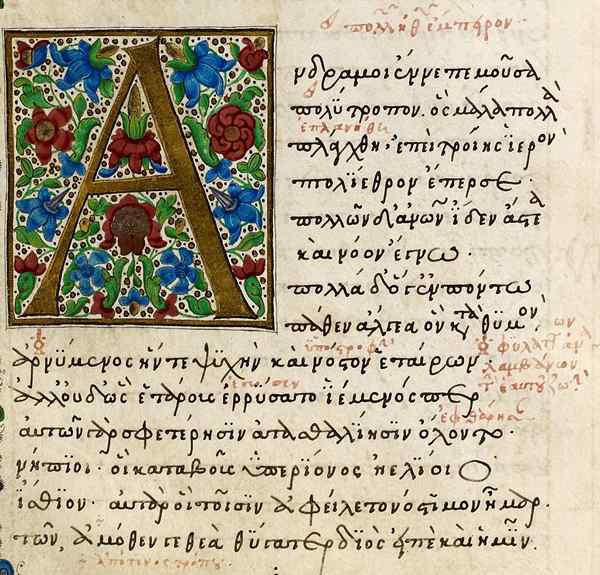 Ανδραμοι ἔννεπε μοῦσα
πολύτροπον. ὃς μάλα πολλὰ
ἐπλανήθη
πλάγχθη· ἐπεὶ τροίης ἱερὸν
πτολίεθρον ἔπερσε·
πολλῶν δ' ἀνων ἴδεν ἄστεα
καὶ νόον ἔγνω·
πολλὰ δ' ὅγ' ἐν πόντω
πάθεν ἄλγεα ὃν κατὰ θυμόν,
ἀρνύμενος ἥν τε ψυχὴν καὶ νόστον ἑταίρων
ἀλλ' οὐδ' ὣς ἑτάρους ἐρρύσατο ἱέμενός περ
αὐτῶν γὰρ σφετέρησιν ἀτασθαλίησιν ὄλοντο·
νήπιοι· οἳ κατὰ βοῦς ὑπερίονος ἠελίοιο
ἴσθιον· αὐτὰρ ὁ τοῖσιν ἀφείλετο νόστιμον ἦμαρ·
τῶν, ἀμόθεν γε θεὰ θύγατερ διὸς εἰπὲ καὶ ἡμῖν.